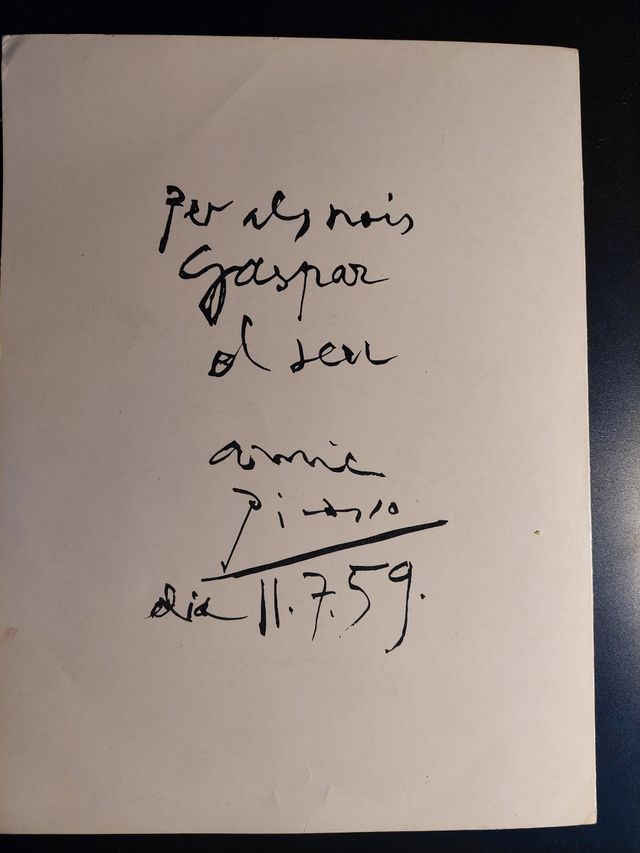 Per als nois
Gaspar
el seu
amic
Picasso
dia 11.7.59.